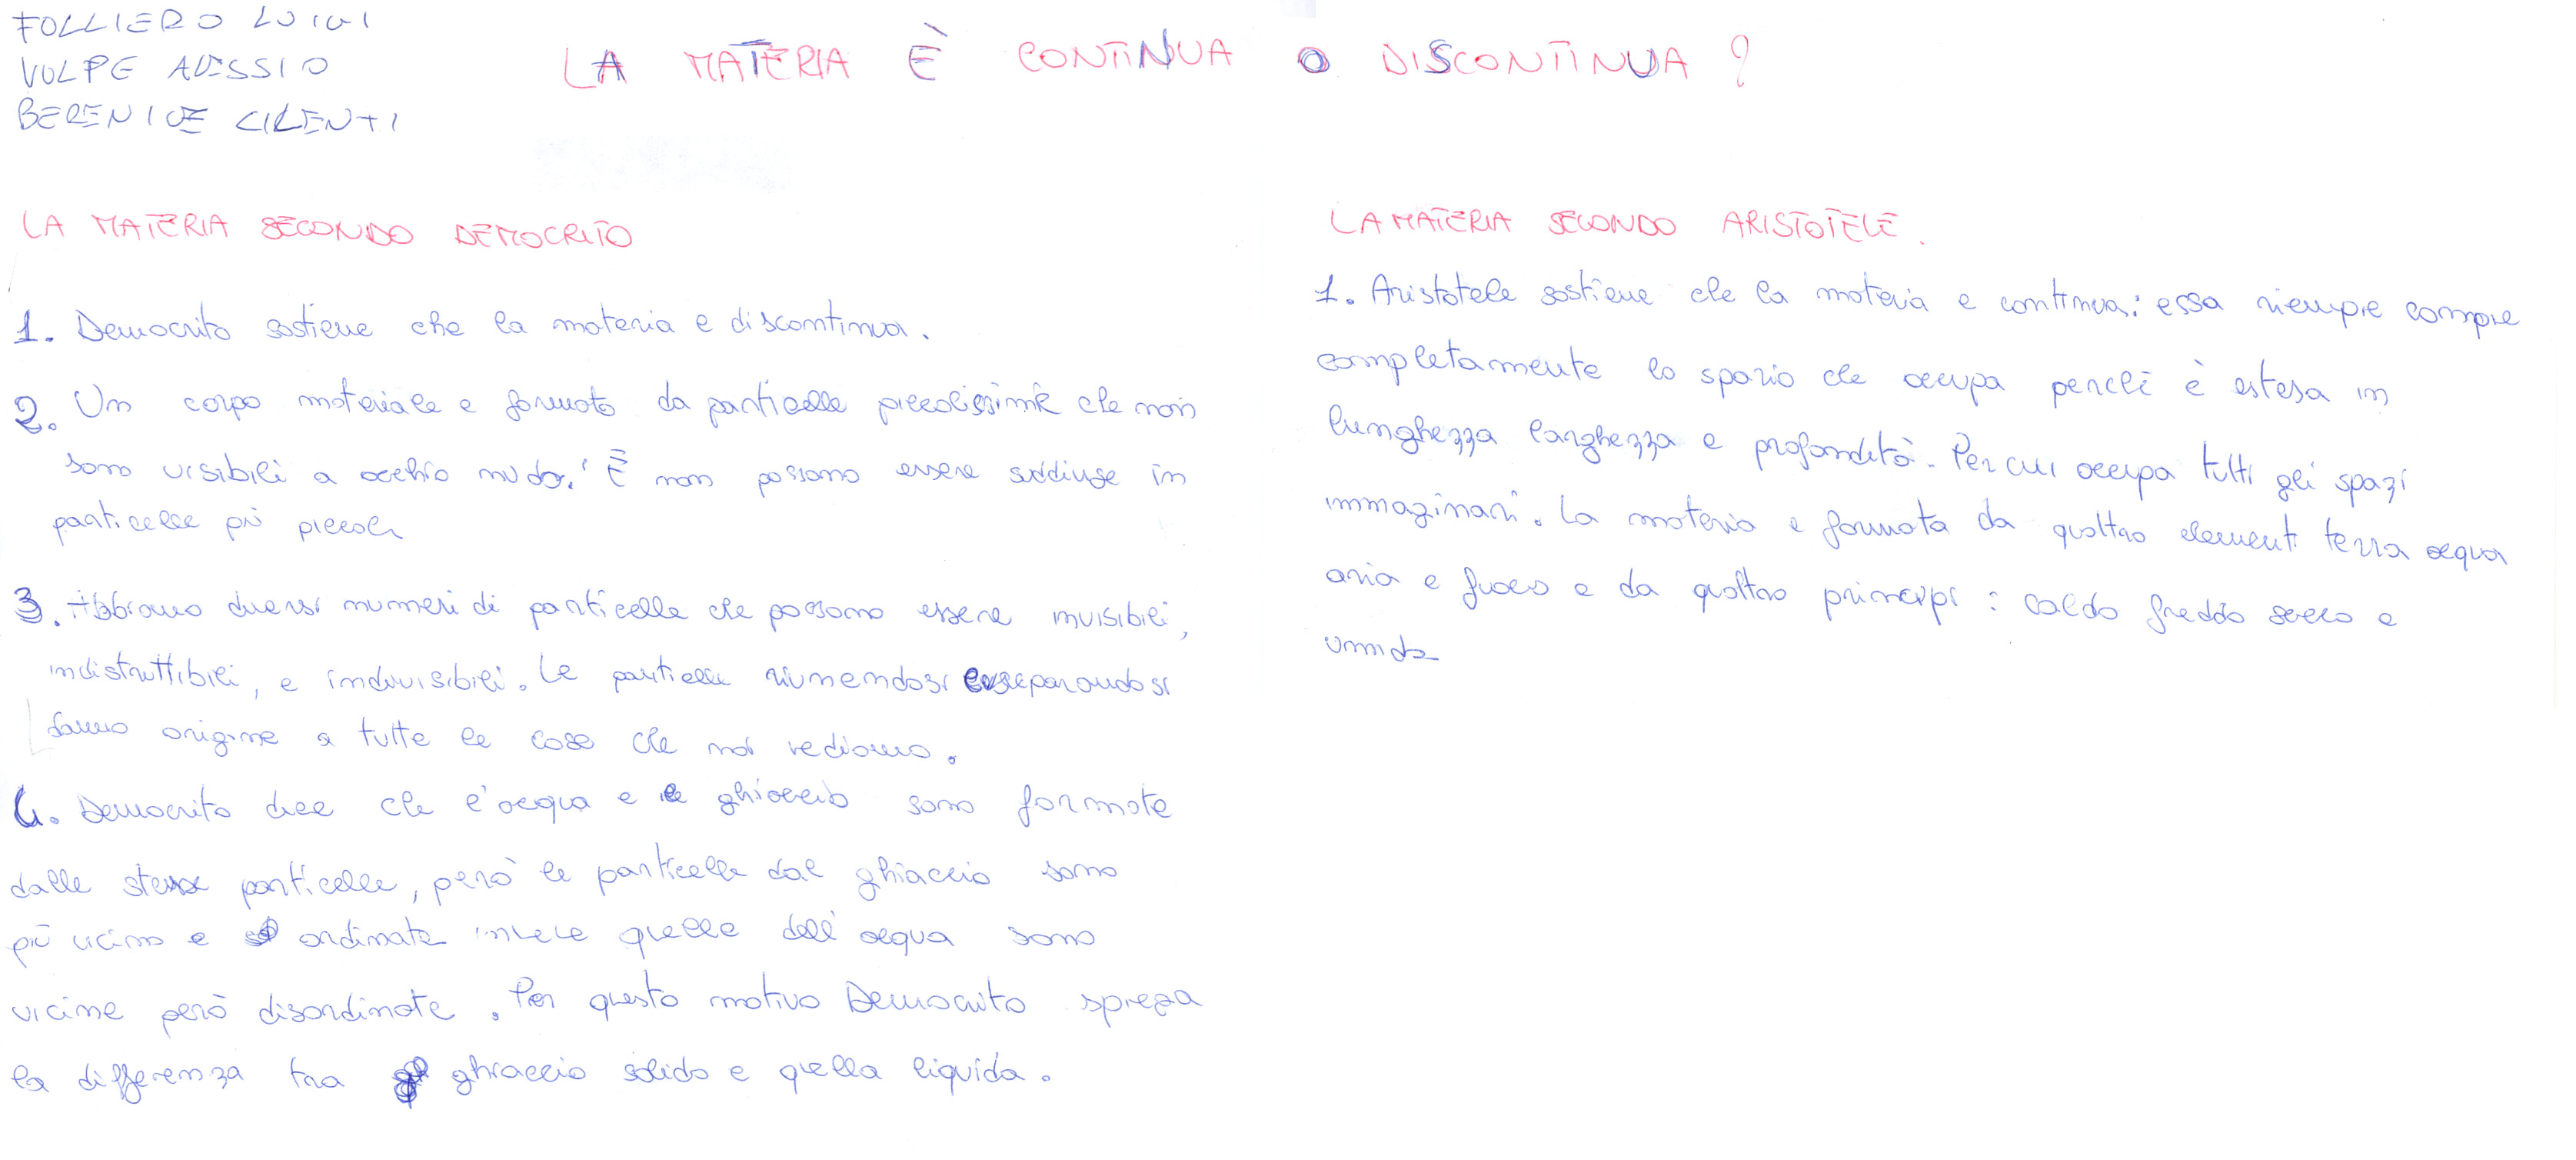 FOLLIERO LUIGI
VOLPE ALESSIO
BERENICE CILENTI
LA MATERIA È CONTINUA O DISCONTINUA ?
LA MATERIA SECONDO DEMOCRITO
1. Democrito sostiene che la materia e discontinua.
2. Un corpo materiale e formato da particelle piccolissime che non
sono visibili a occhio nudo. È non possono essere suddivise in
particelle più piccole
3. Abbiamo diversi numeri di particelle che possono essere invisibili,
indistruttibili, e indivisibili. Le particelle riunendosi e separandosi
danno origine a tutte le cose che noi vediamo.
4. Democrito dice che l'acqua e il ghiaccio sono formate
dalle stesse particelle, però le particelle dal ghiaccio sono
più vicino e ordinate invece quelle dell'acqua sono
vicine però disordinate. Per questo motivo Democrito spiega
la differenza tra ghiaccio solido e quella liquida.
LA MATERIA SECONDO ARISTOTELE.
1. Aristotele sostiene che la materia e continua: essa riempie compre
completamente lo spazio che occupa perchè è estesa in
lunghezza larghezza e profondità. Per cui occupa tutti gli spazi
immaginari. La materia e formata da quattro elementi terra acqua
aria e fuoco e da quattro principi : caldo freddo secco e
umido